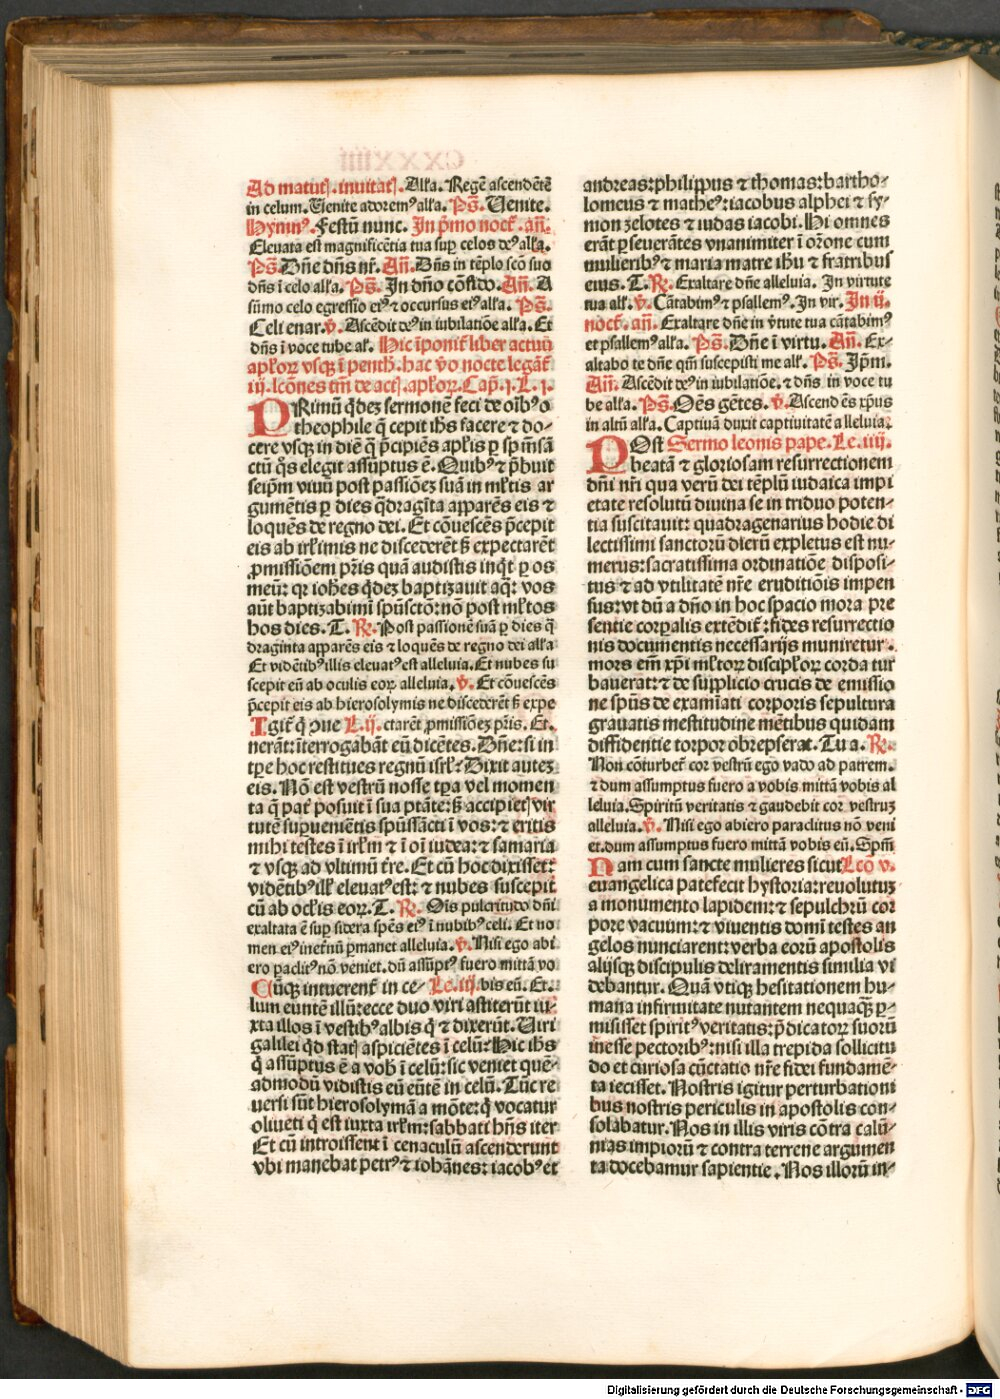 Ad matutꝭ. inuitatꝭ. Alľa. Regē ascendētē
in celum. Venite adorem⁹ alľa. Ps̄. Venite.
Hymn⁹. Festū nunc. In p̄mo noct̄. an̄.
Eleuata est magnificētia tua sup̱ celos de⁹ alľa.
Ps̄. Dn̄e dn̄s nr̄. An̄. Dn̄s in tēplo scō suo
dn̄s ī celo alľa. Ps̄. In dn̄o cōfido. An̄. A
sūmo celo egressio ei⁹ ⁊ occursus ei⁹ alľa. Ps̄.
Celi enar. v̄. Ascēdit de⁹ in iubilatiōe alľa. Et
dn̄s ī voce tube aľ. Hic īponit̄ liber actuū
apľoꝝ vsqꝫ ī penth̄. hac v̄o nocte legāt̄
iij. lcōnes tm̄ de actꝭ. apľoꝝ. Cap̄. j. L. j.
PRimū qͥdeꝫ sermonē feci de oīb⁹ o
theophile q̄ cepit ih̄s facere ⁊ do-
cere vsqꝫ in diē q̄ p̄cipiēs apľis ꝑ sp̄m sā
ctū qͦs elegit assūptus ē. Quib⁹ ⁊ p̄buit
seip̄m viuū post passiōeꝫ suā in mľtis ar
gumētis ꝑ dies qͣdragīta apparēs eis ⁊
loquēs de regno dei. Et cōuescēs p̄cepit
eis ab irľimis ne discederēt sꝫ expectarēt
ꝓmissiōem pr̄is quā audistis inqͥt ꝑ os
meū: qꝛ ioh̄es qͥdeꝫ baptizauit aq̄: vos
aūt baptizabimī sp̄usctō: nō post mľtos
hos dies. T. ℟. Post passionē suā ꝑ dies q̄
draginta apparēs eis ⁊ loquēs de regno dei alľa
Et vidētib⁹ illis eleuat⁹ est alleluia. Et nubes su
scepit eū ab oculis eoꝝ alleluia. v̄. Et cōuescēs
p̄cepit eis ab hierosolymis ne discederēt sꝫ expe
Igit̄ q̄ ꝯue L. ij. ctarēt ꝓmissiōeꝫ pr̄is. Et.
nerāt: īterrogabāt eū dicētes. Dn̄e: si in
tp̄e hoc restitues regnū isrľ? Dixit auteꝫ
eis. Nō est vestrū nosse tp̄a vel momen
ta q̄ pat̄ posuit ī sua ptāte: sꝫ accipietꝭ vir
tutē sup̱uenīetis sp̄ussācti ī vos: ⁊ eritis
mihi testes ī irľm ⁊ ī oī iudea: ⁊ samaria
⁊ vsqꝫ ad vltimū t̄re. Et cū hoc dixisset:
vidētib⁹ illꝭ eleuat⁹ est: ⁊ nubes suscepit
eū ab ocľis eoꝝ. T. ℟. Oīs pulcritudo dn̄i
exaltata ē sup̱ sidera spēs ei⁹ ī nubib⁹ celi. Et no
men ei⁹ inet̄nū ꝑmanet alleluia. v̄. Nisi ego abi
ero paclit⁹ nō veniet. dū assūpt⁹ fuero mittā vo
Cūqꝫ intuerent̄ in ce- Le. iij. bis eū. Et.
lum euntē illū: ecce duo viri astiterūt iu-
xta illos ī vestib⁹ albis q̄ ⁊ dixerūt. Viri
galilei qͥd statꝭ aspiciētes ī celū? Hic ih̄s
q̄ assūptus ē a vob̄ ī celū: sic veniet quē-
admodū vidistis eū eūtē in celū. Tūc re
uersi sūt hierosolymā a mōte: q̄ vocatur
oliueti q̄ est iuxta irľm: sabbati hn̄s iter
Et cū introissent ī cenaculū ascenderunt
vbi manebat petr⁹ ⁊ iohānes: iacob⁹ et
andreas: philippus ⁊ thomas: bartho-
lomeus ⁊ mathe⁹: iacobus alphei ⁊ sy-
mon zelotes ⁊ iudas iacobi. Hi omnes
erāt ꝑseuerātes vnanimiter ī or̄one cum
mulierib⁹ ⁊ maria matre ih̄u ⁊ fratribus
eius. T. ℟. Exaltare dn̄e alleluia. In virtute
tua alľ. v̄. Cātabim⁹ ⁊ psallem⁹. In vir. In ij.
noct̄. an̄. Exaltare dn̄e in v̄tute tua cātabim⁹
et psallem⁹ alľa. Ps̄. Dn̄e ī virtu. An̄. Ex-
altabo te dn̄e qm̄ suscepisti me alľ. Ps̄. Ip̄m.
An̄. Ascēdit de⁹ in iubilatiōe. ⁊ dn̄s in voce tu
be alľa. Ps̄. Oēs gētes. v̄. Ascendēs xp̄us
in altū alľa. Captiuā duxit captiuitatē alleluia.
POst Sermo leonis pape. Le. iiij.
beatā ⁊ gloriosam resurrectionem
dn̄i nr̄i qua verū dei tēplū iudaica impi
etate resolutū diuina se in triduo poten-
tia suscitauit: quadragenarius hodie di
lectissimi sanctorū dierū expletus est nu-
merus: sacratissima ordinatiōe disposi-
tus ⁊ ad vtilitatē nr̄e eruditiōis impen
sus: vt dū a dn̄o in hoc spacio mora pre
sentie corꝑalis extēdit̄: fides resurrectio
nis documentis necessarijs muniretur.
mors em̄ xp̄i mľtoꝝ discipľoꝝ corda tur
bauerat: ⁊ de supplicio crucis de emissio
ne sp̄us de exam̄iati corporis sepultura
grauatis mestitudine mētibus quidam
diffidentie torpor obrepserat. Tu a. ℟.
Non cōturbet̄ cor vestrū ego vado ad patrem.
⁊ dum assumptus fuero a vobis mittā vobis al
leluia. Spiritū veritatis ⁊ gaudebit cor vestruꝫ
alleluia. v̄. Nisi ego abiero paraclitus nō veni
et. dum assumptus fuero mittā vobis eū. Spm̄
Nam cum sancte mulieres sicut Leō v.
euangelica patefecit hystoria: reuolutuꝫ
a monumento lapidem: ⁊ sepulchrū cor
pore vacuum: ⁊ viuentis domī testes an
gelos nunciarent: verba eorū apostolis
alijsqꝫ discipulis deliramentis similia vi
debantur. Quā vtiqꝫ hesitationem hu-
mana infirmitate nutantem nequaqꝫ̄ ꝑ-
misisset spirit⁹ veritatis: p̄dicatoꝝ suorū
inesse pectorib⁹: nisi illa trepida sollicitu
do et curiosa cūctatio nr̄e fidei fundamē-
ta iecisset. Nostris igitur perturbationi
bus nostris periculis in apostolis con-
solabatur. Nos in illis viris cōtra calū-
nias impiorū ⁊ contra terrene argumen
ta docebamur sapientie. Nos illorū in-
Digitalisierung gefördert durch die Deutsche Forschungsgemeinschaft - DFG